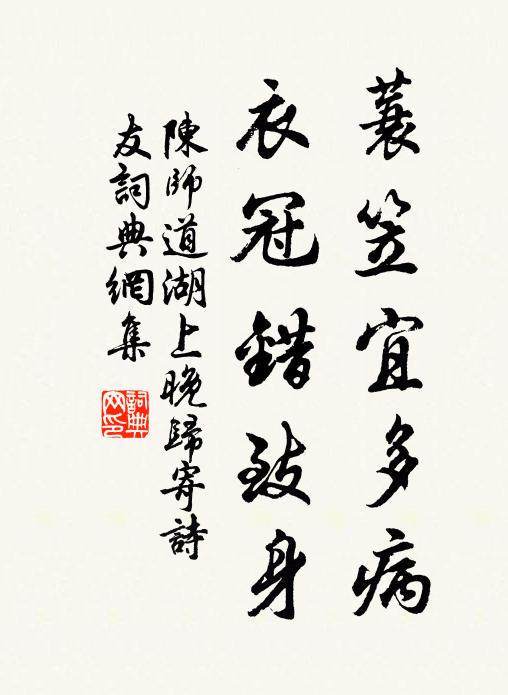 蓑笠宜多病
衣冠錯致身
陳師道湖上晚歸寄詩
友詞典網集
詞典
网印